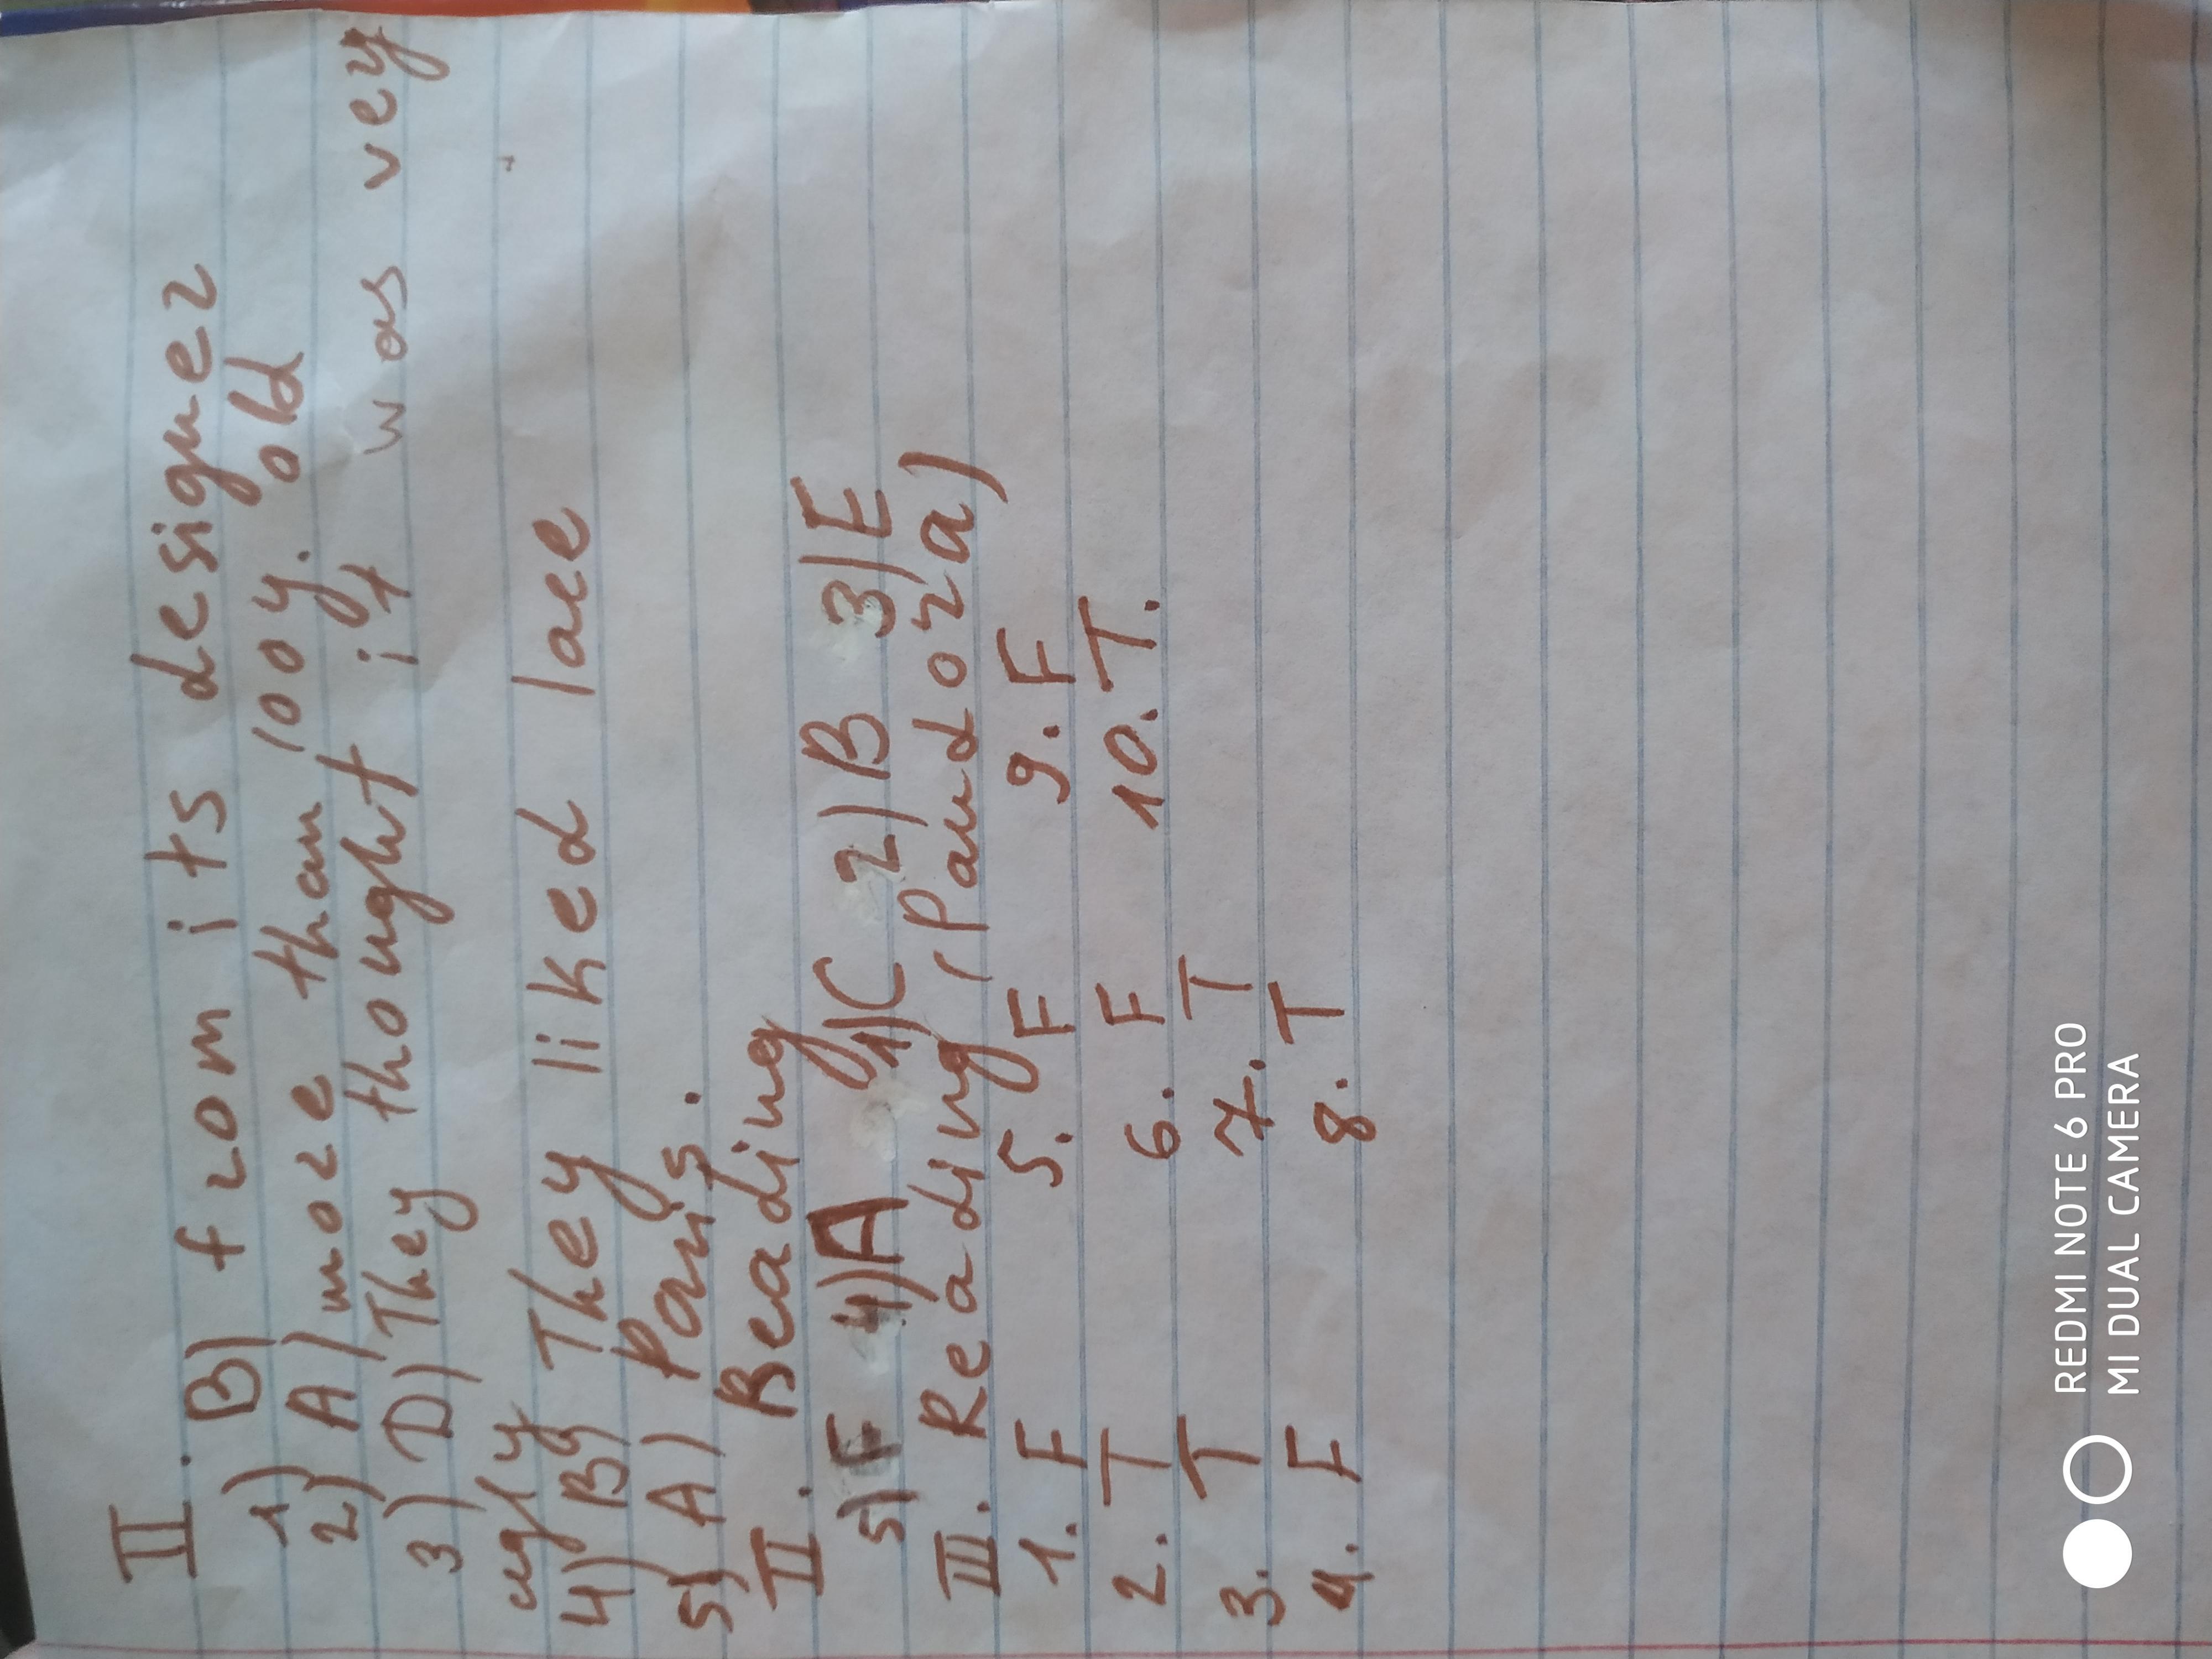 II.
1) B) from its designer
2) A) more than 100y. old
3) D) They thought it was vey
ugly
4) B) They liked lace
5) A) Paris.
II. Beading
5) F 4) A 1) C 2) B 3) E
III. Reading (Pandora)
1. F 5. F 9. F
2. T 6. F 10. T.
3. T 7. T
4. F 8. T
REDMI NOTE 6 PRO
MI DUAL CAMERA